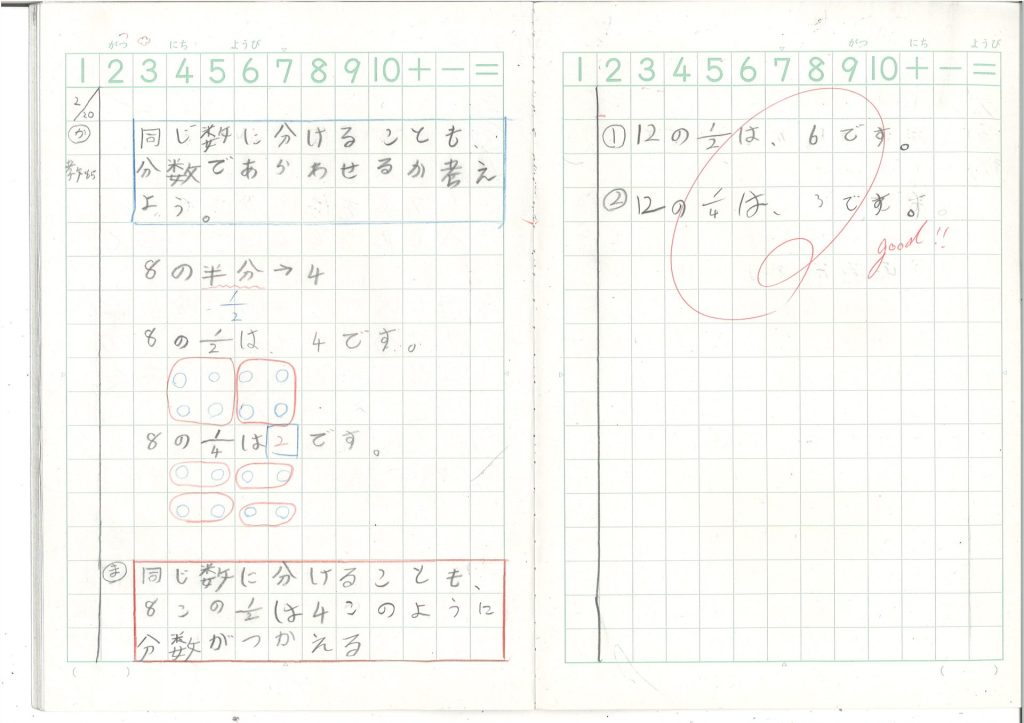 がつ にち ようび
1 2 3 4 5 6 7 8 9 10 + − =
2/20
か
同じ数に分けることも、
分数であらわせるか考え
よう。
8の半分→4
1/2
8の1/2は、4です。
8の1/4は2です。
ま
同じ数に分けることも、
8この1/2は4このように
分数がつかえる
がつ にち ようび
1 2 3 4 5 6 7 8 9 10 + − =
① 12の1/2は、6です。
② 12の1/4は、3です。
good!!